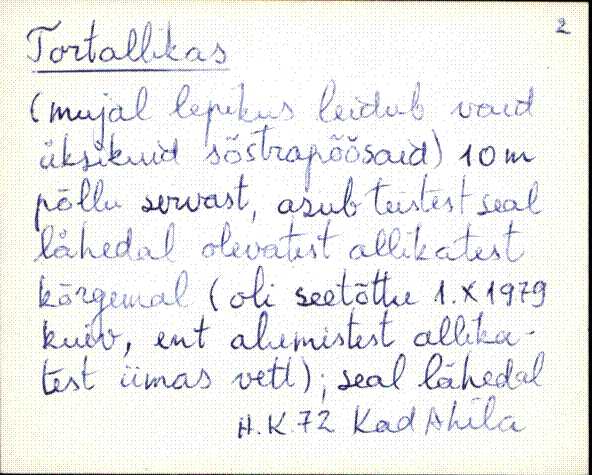 2
Tortallikas
(mujal lepikus leidub vaid
üksikuid sõstrapõõsaid) 10 m
põllu servast, asub teistest seal
lähedal olevatest allikatest
kõrgemal (oli seetõttu 1.X 1979
kuiv, ent alumistest allika-
test iimas vett); seal lähedal
H.K.72 Kad Ahila